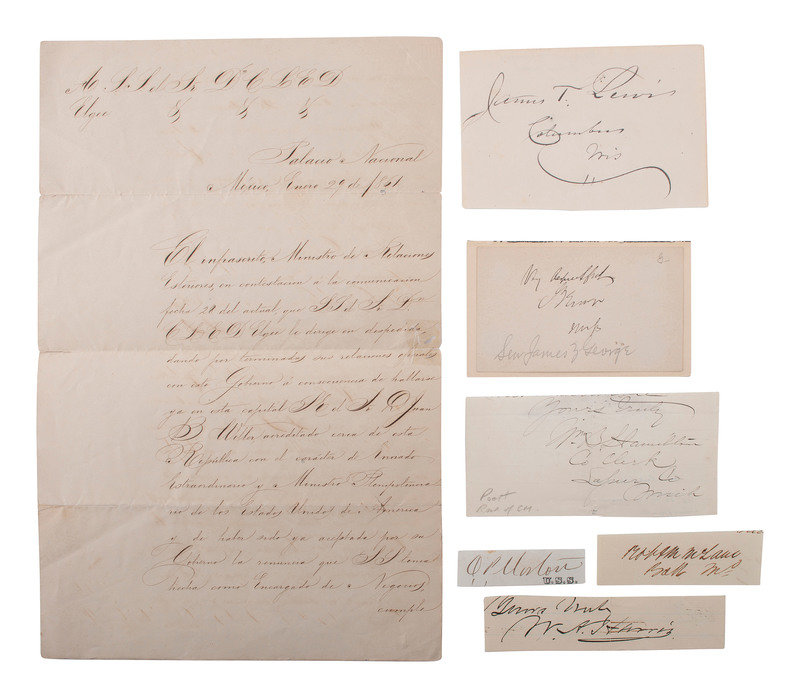 Palacio Nacional
México, Enero 29 de 1861
El infrascrito, Ministro de Relaciones
Esteriores, en contestacion á la comunicacion
fecha 28 del actual, que S. S. el Sr. Dn.
C. L. E. D. Ugee le dirige en despedida,
dando por terminadas sus relaciones oficiales
con este Gobierno á consecuencia de hallarse
ya en esta capital S. E. el Sr. D. Juan
B. Weller acreditado cerca de esta
República con el carácter de Enviado
Extraordinario y Ministro Plenipotencia
rio de los Estados Unidos de América
y de haber sido ya aceptada por su
Gobierno la renuncia que S. S. tenia
hecha como Encargado de Negocios,
cumple
James T. Lewis
Columbus
Wis
Very respectfully
Sen James Z George
Yours truly
Wm S. Hamilton
Co Clerk
Lapeer Co
Mich
O P Morton
U.S.S.
Robt M McLane
Balt Md
Yours truly
W. A. Harris